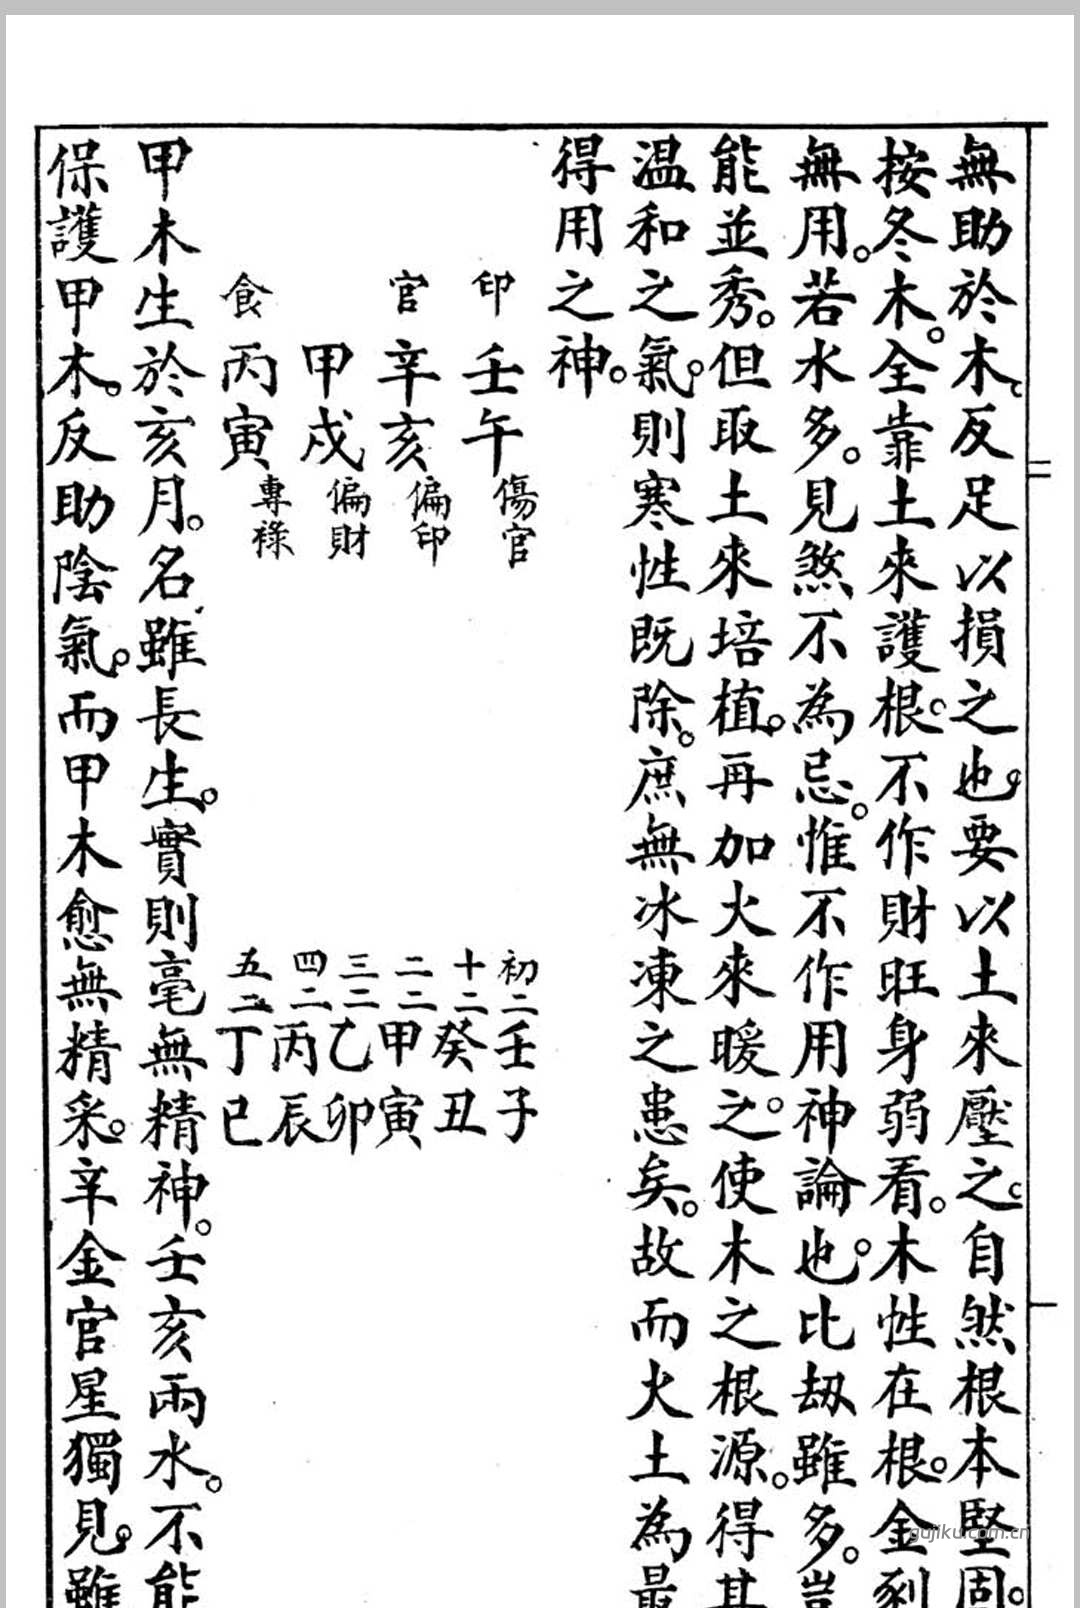 無助於木。反足以損之也。要以土來壓之。自然根本堅固。
按冬木。全靠土來護根。不作財旺身弱看。木性在根。金剩
無用。若水多。見煞不為忌。惟不作用神論也。比刼雖多。豈
能並秀。但取土來培植。再加火來暖之。使木之根源。得其
温和之氣。則寒性既除。庶無冰凍之患矣。故而火土為最
得用之神。
印 壬午 傷官
官 辛亥 偏印
甲戌 偏財
食 丙寅 專祿
初二 壬子
十二 癸丑
二二 甲寅
三二 乙卯
四二 丙辰
五二 丁巳
甲木生於亥月。名雖長生。實則毫無精神。壬亥兩水。不能
保護甲木。反助陰氣。而甲木愈無精采。辛金官星獨見。雖
gujiku.com.cn